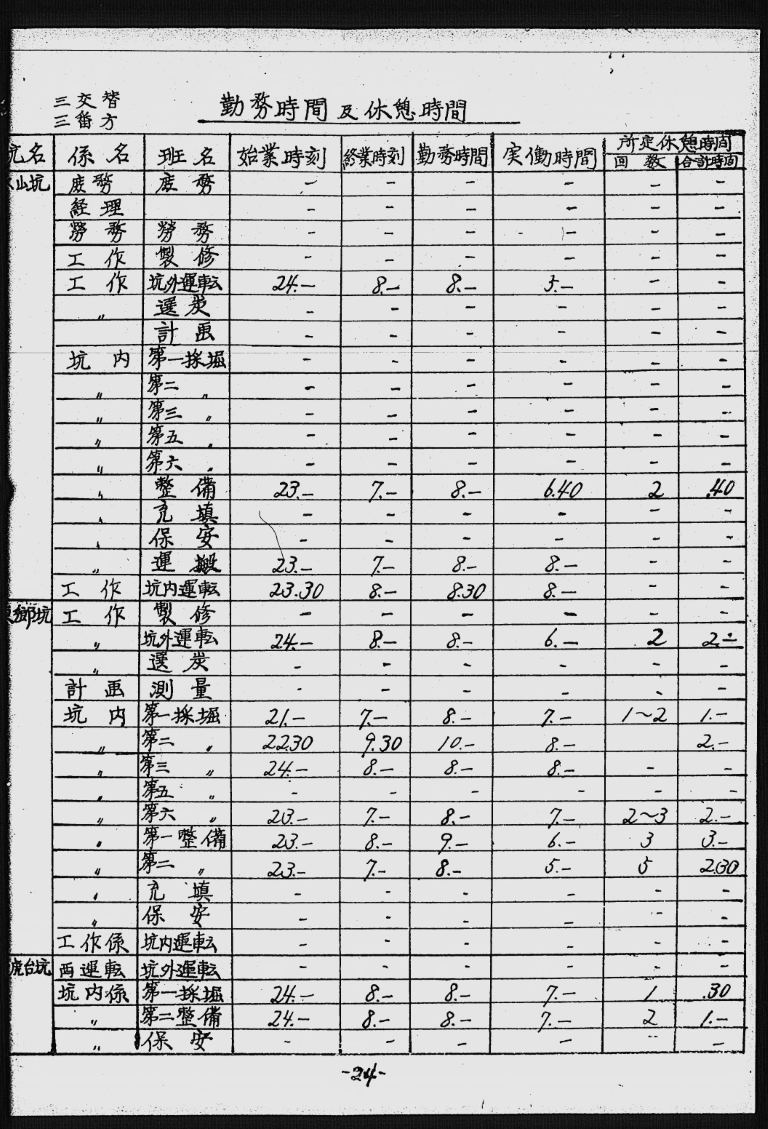 三交替
三番方
勤務時間及休憩時間
坑名 係名 班名 始業時刻 終業時刻 勤務時間 実働時間 所定休憩時間
回数 合計時間
山坑 庶務 庶務 - - - - - -
経理 - - - - - -
勞務 勞務 - - - - - -
工作 製修 - - - - - -
工作 坑外運転 24.- 8.- 8.- 5.- - -
〃 選炭 - - - - - -
計画 - - - - - -
坑内 第一採堀 - - - - - -
〃 第二 〃 - - - - - -
〃 第三 〃 - - - - - -
〃 第五 〃 - - - - - -
〃 第六 〃 - - - - - -
〃 整備 23.- 7.- 8.- 6.40 2 .40
〃 充填 - - - - - -
〃 保安 - - - - - -
〃 運搬 23.- 7.- 8.- 8.- - -
工作 坑内運転 23.30 8.- 8.30 8.- - -
郷坑 工作 製修 - - - - - -
〃 坑外運転 24.- 8.- 8.- 6.- 2 2.-
〃 選炭 - - - - - -
計画 測量 - - - - - -
坑内 第一採堀 21.- 7.- 8.- 7.- 1~2 1.-
〃 第二 〃 22.30 9.30 10.- 8.- 2.-
〃 第三 〃 24.- 8.- 8.- 8.- - -
〃 第五 〃 - - - - - -
〃 第六 〃 23.- 7.- 8.- 7.- 2~3 2.-
〃 第一整備 23.- 8.- 9.- 6.- 3 3.-
〃 第二 〃 23.- 7.- 8.- 5.- 5 2.30
〃 充填 - - - - - -
〃 保安 - - - - - -
工作係 坑内運転 - - - - - -
台坑 両運転 坑外運転 - - - - - -
坑内係 第一採堀 24.- 8.- 8.- 7.- 1 .30
〃 第二整備 24.- 8.- 8.- 7.- 2 1.-
〃 保安 - - - - - -
-24-